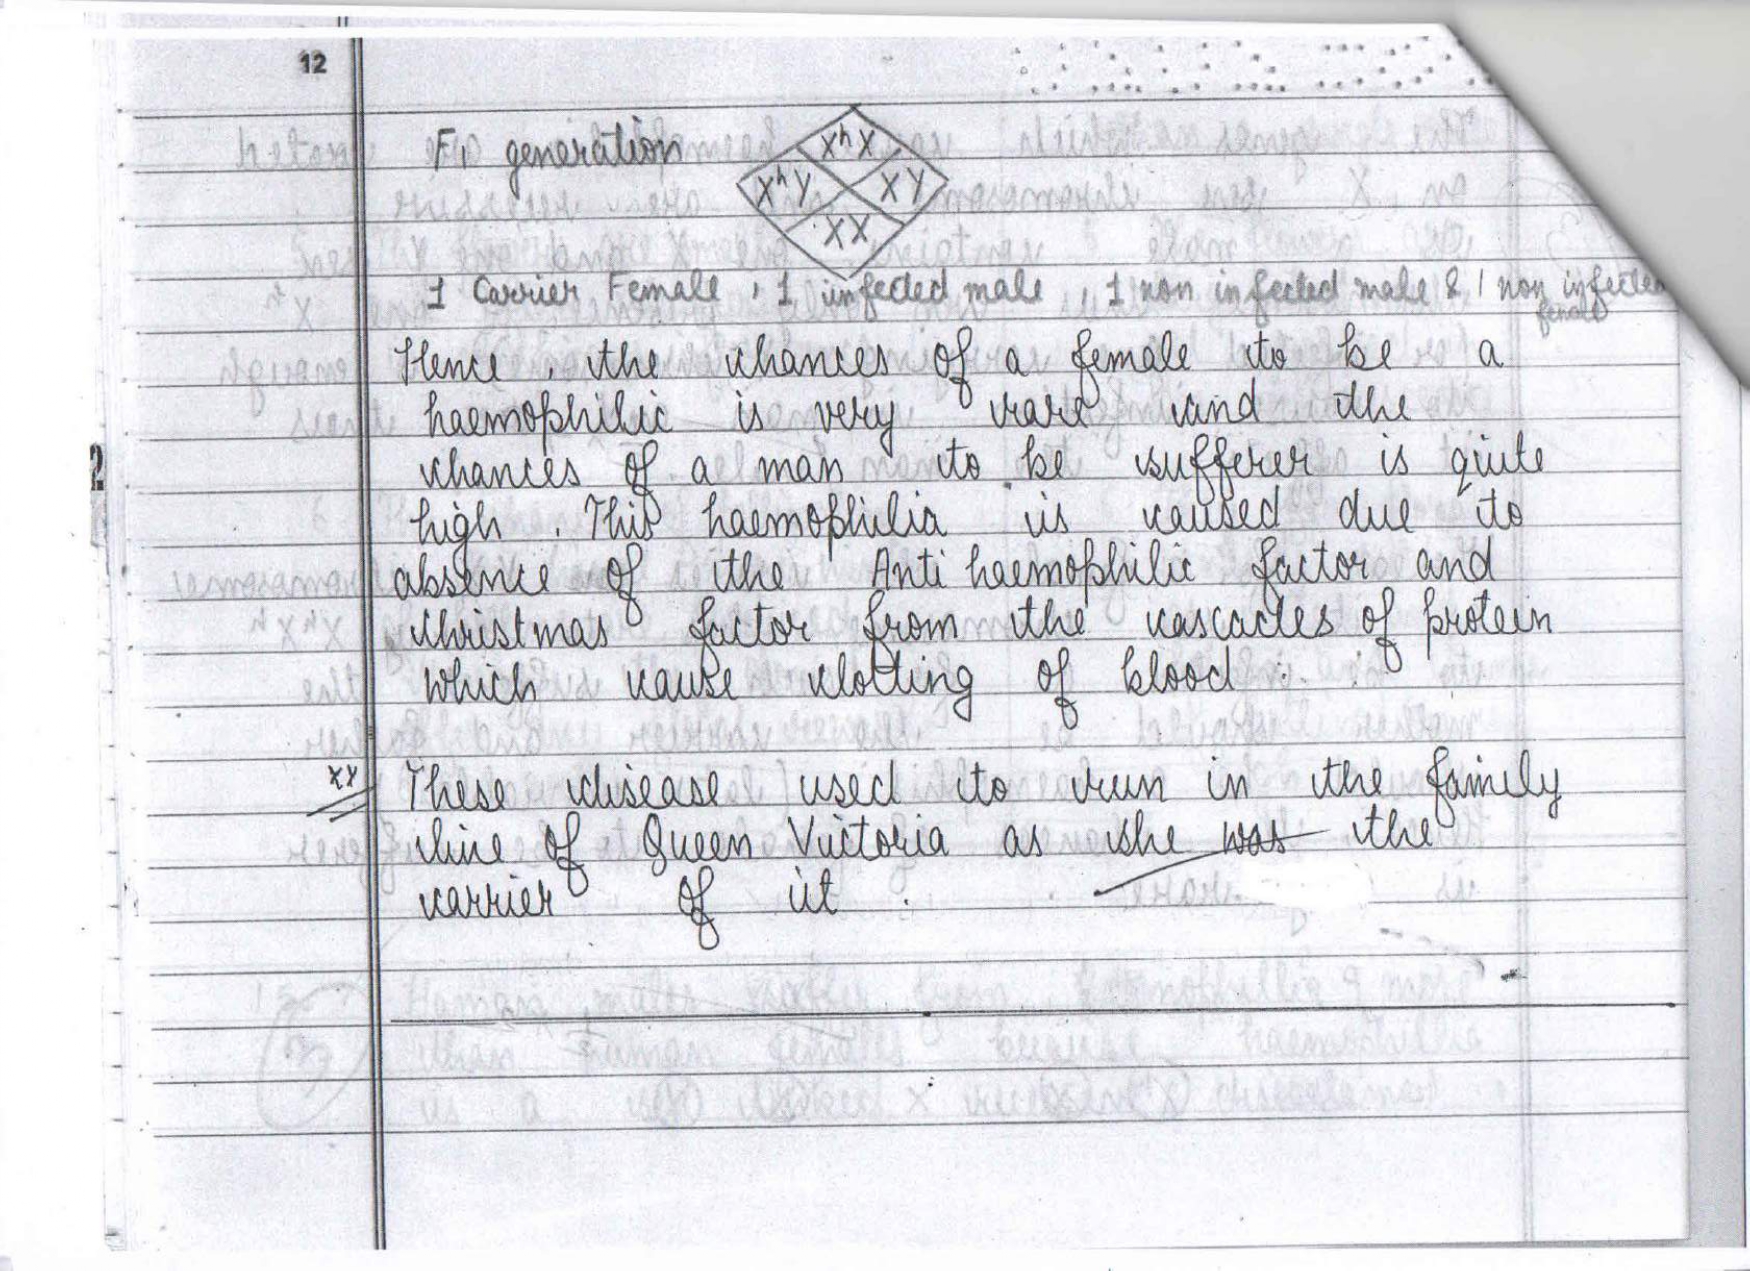 12
F1 generation
XhX
XhY XY
XX
1 Carrier Female, 1 infected male, 1 non infected male & 1 non infected
female
Hence, the chances of a female to be a
haemophilic is very rare and the
chances of a man to be sufferer is quite
high. This haemophilia is caused due to
absence of the Anti haemophilic factor and
christmas factor from the cascades of protein
which cause clotting of blood.
XY These disease used to run in the family
line of Queen Victoria as she was the
carrier of it.